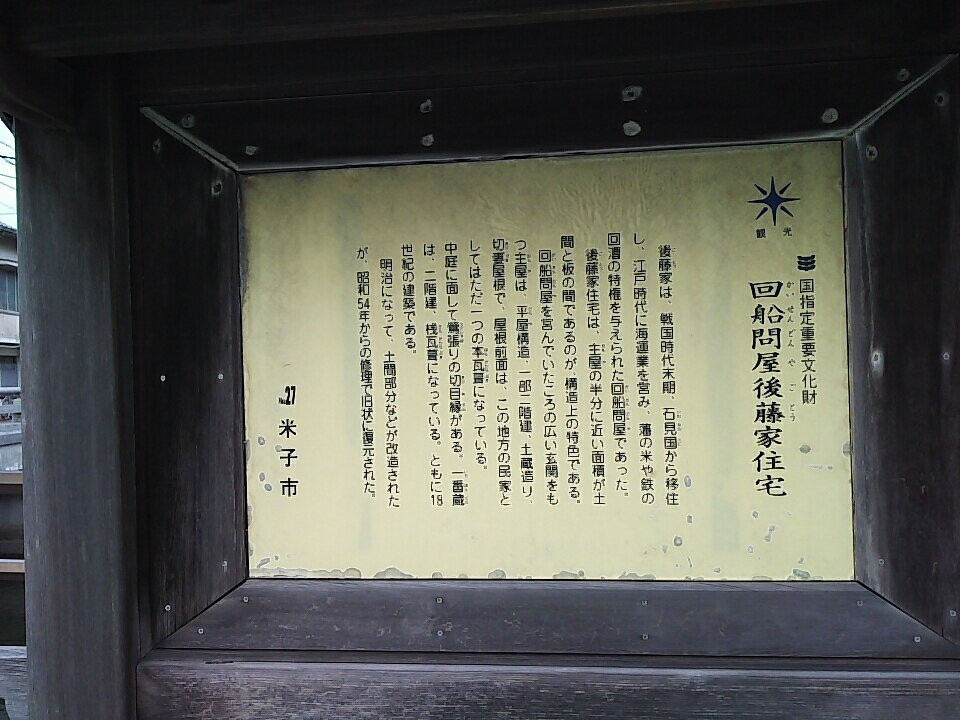 観光
国指定重要文化財
かいせんどんやごとう
回船問屋後藤家住宅
後藤家は、戦国時代末期、石見国から移住
し、江戸時代に海運業を営み、藩の米や鉄の
回漕の特権を与えられた回船問屋であった。
後藤家住宅は、主屋の半分に近い面積が土
間と板の間であるのが、構造上の特色である。
回船問屋を営んでいたころの広い玄関をも
つ主屋は、平屋構造、一部二階建、土蔵造り、
切妻屋根で、屋根前面は、この地方の民家と
してはただ一つの本瓦葺になっている。
中庭に面して鶯張りの切目縁がある。一番蔵
は、二階建、桟瓦葺になっている。ともに18
世紀の建築である。
明治になって、土間部分などが改造された
が、昭和54年からの修理で旧状に復元された。
No.27 米子市